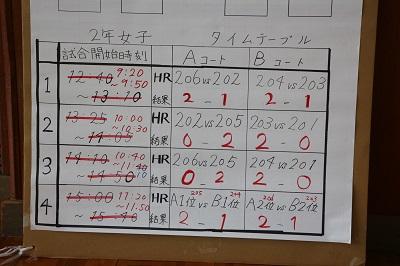 2年女子 タイムテーブル
試合開始時刻 Aコート Bコート
1 12:40 ~ 13:10 9:20 ~ 9:50 HR 206 vs 202 204 vs 203
結果 2 - 1 2 - 1
2 13:25 ~ 14:05 10:00 ~ 10:30 HR 202 vs 205 203 vs 201
結果 0 - 2 2 - 0
3 14:10 ~ 14:50 10:40 ~ 11:10 HR 206 vs 205 204 vs 201
結果 0 - 2 2 - 0
4 15:00 ~ 15:40 11:20 ~ 11:50 HR A1位 vs B1位 205 204 A2位 vs B2位 206 203
結果 2 - 1 2 - 1